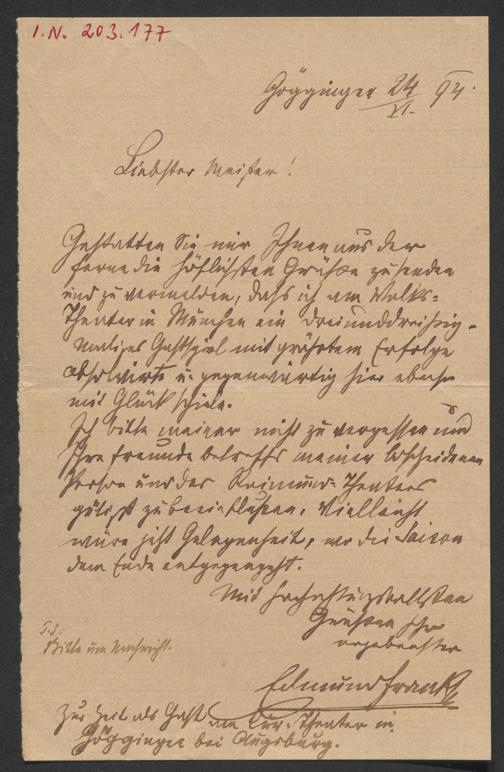 I.N. 203.177
Göggingen 24/VI. 94.
Liebster Meister!
Gestatten Sie mir Ihnen aus der
Ferne die höflichsten Grüße zu senden
und zu vermelden, daß ich am Volks-
Theater in München ein dreiunddreißig-
maliges Gastspiel mit größtem Erfolge
absolvirte u. gegenwärtig hier ebenso
mit Glück spiele.
Ich bitte meiner nicht zu vergessen und
Ihre Freunde betreffs meiner bescheidenen
Person und des Raimund-Theaters
gütigst zu beeinflußen. Vielleicht
wäre jetzt Gelegenheit, wo die Saison
dem Ende entgegengeht.
Mit hochachtungsvollsten
Grüßen Ihr
ergebenster
Edmund Frank
Bitte um Nachricht.
Zur Zeit als Gast am Cur-Theater in
Göggingen bei Augsburg.